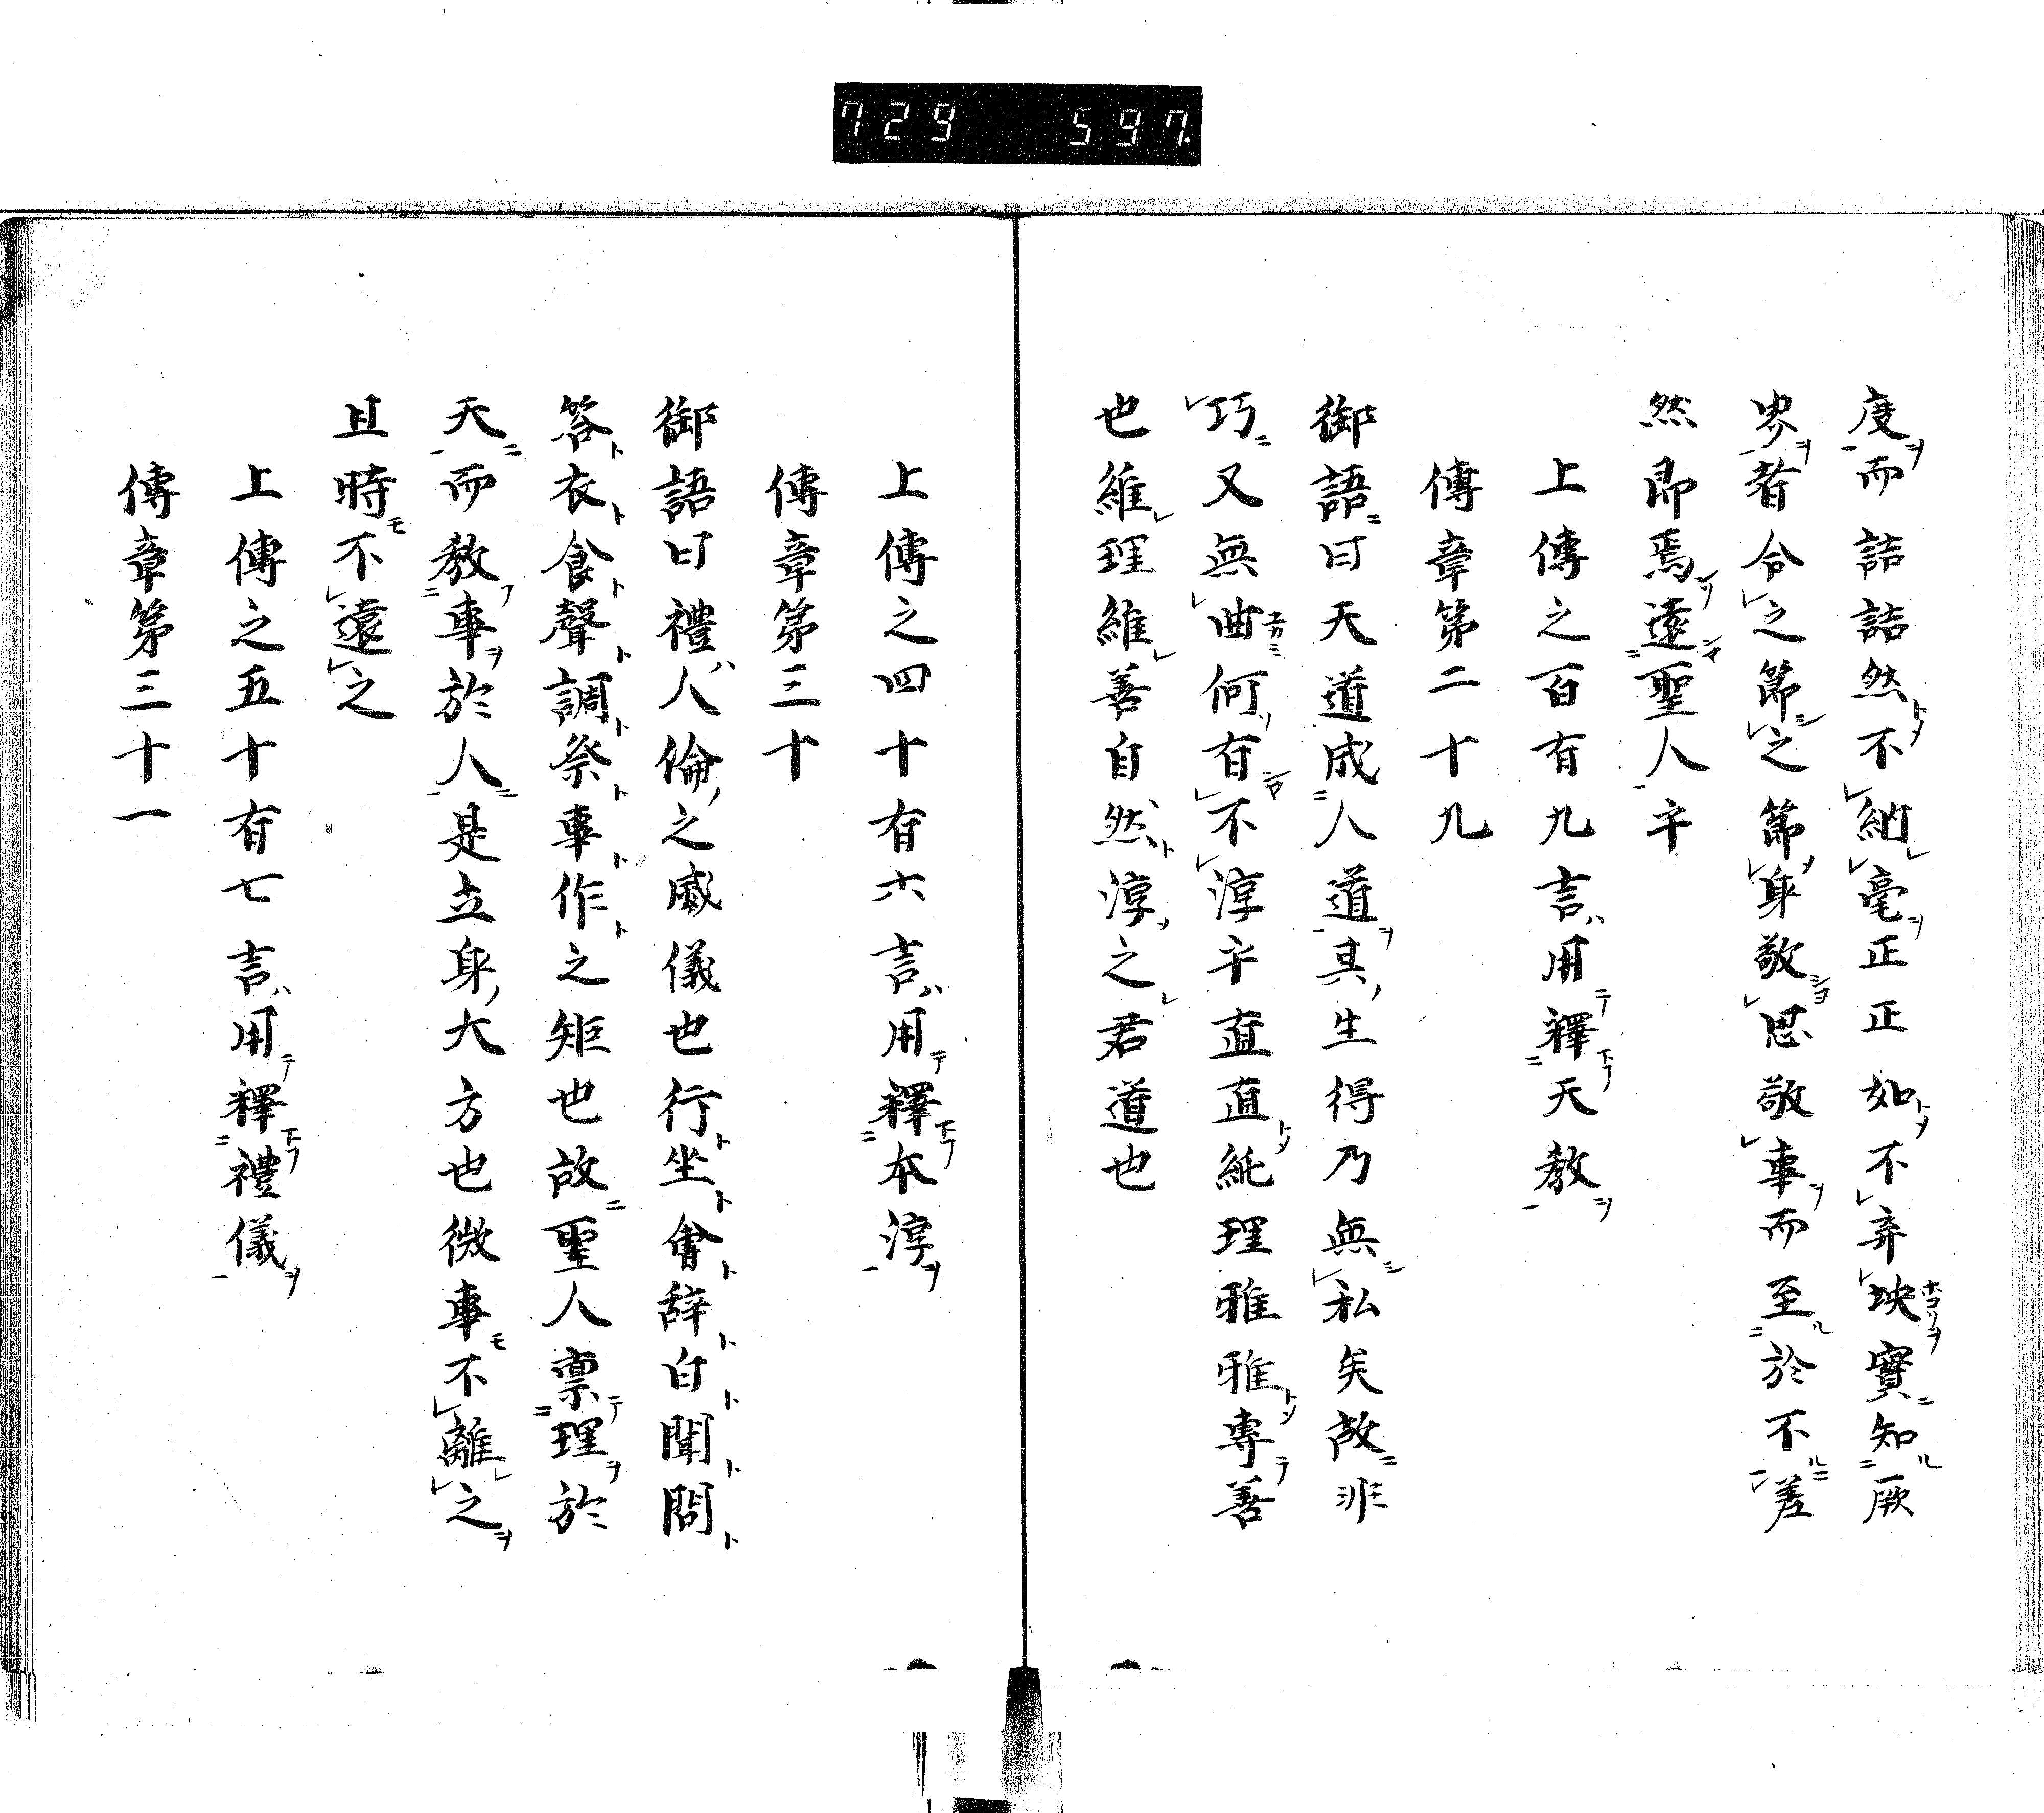 729 597.
度而詰詰然不納毫正正如不弃坱實知厥
者令之節之節身敬思敬事而至於不差
然即焉遠聖人乎
上傳之百有九言用釋天教
傳章第二十九
御語曰天道成人道其生得乃無私矣故非
巧又無曲何有不淳乎直直純理雅雅專善
也維理維善自然淳之君道也
上傳之四十有六言用釋本淳
傳章第三十
御語曰禮人倫之威儀也行坐會辞白聞問
答衣食聲調祭事作之矩也故聖人禀理於
天而教事於人是立身大方也微事不離之
且時不遠之
上傳之五十有七言用釋禮儀
傳章第三十一